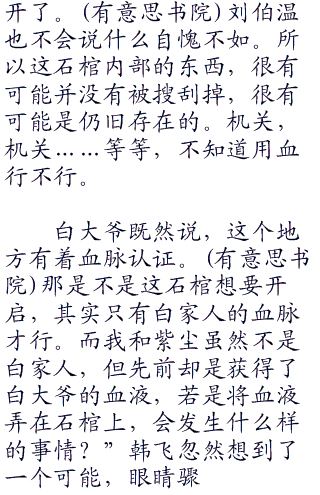 开了。(有意思书院)刘伯温
也不会说什么自愧不如。所
以这石棺内部的东西，很有
可能并没有被搜刮掉，很有
可能是仍旧存在的。机关，
机关……等等，不知道用血
行不行。
白大爷既然说，这个地
方有着血脉认证。(有意思书
院)那是不是这石棺想要开
启，其实只有白家人的血脉
才行。而我和紫尘虽然不是
白家人，但先前却是获得了
白大爷的血液，若是将血液
弄在石棺上，会发生什么样
的事情？”韩飞忽然想到了
一个可能，眼睛骤